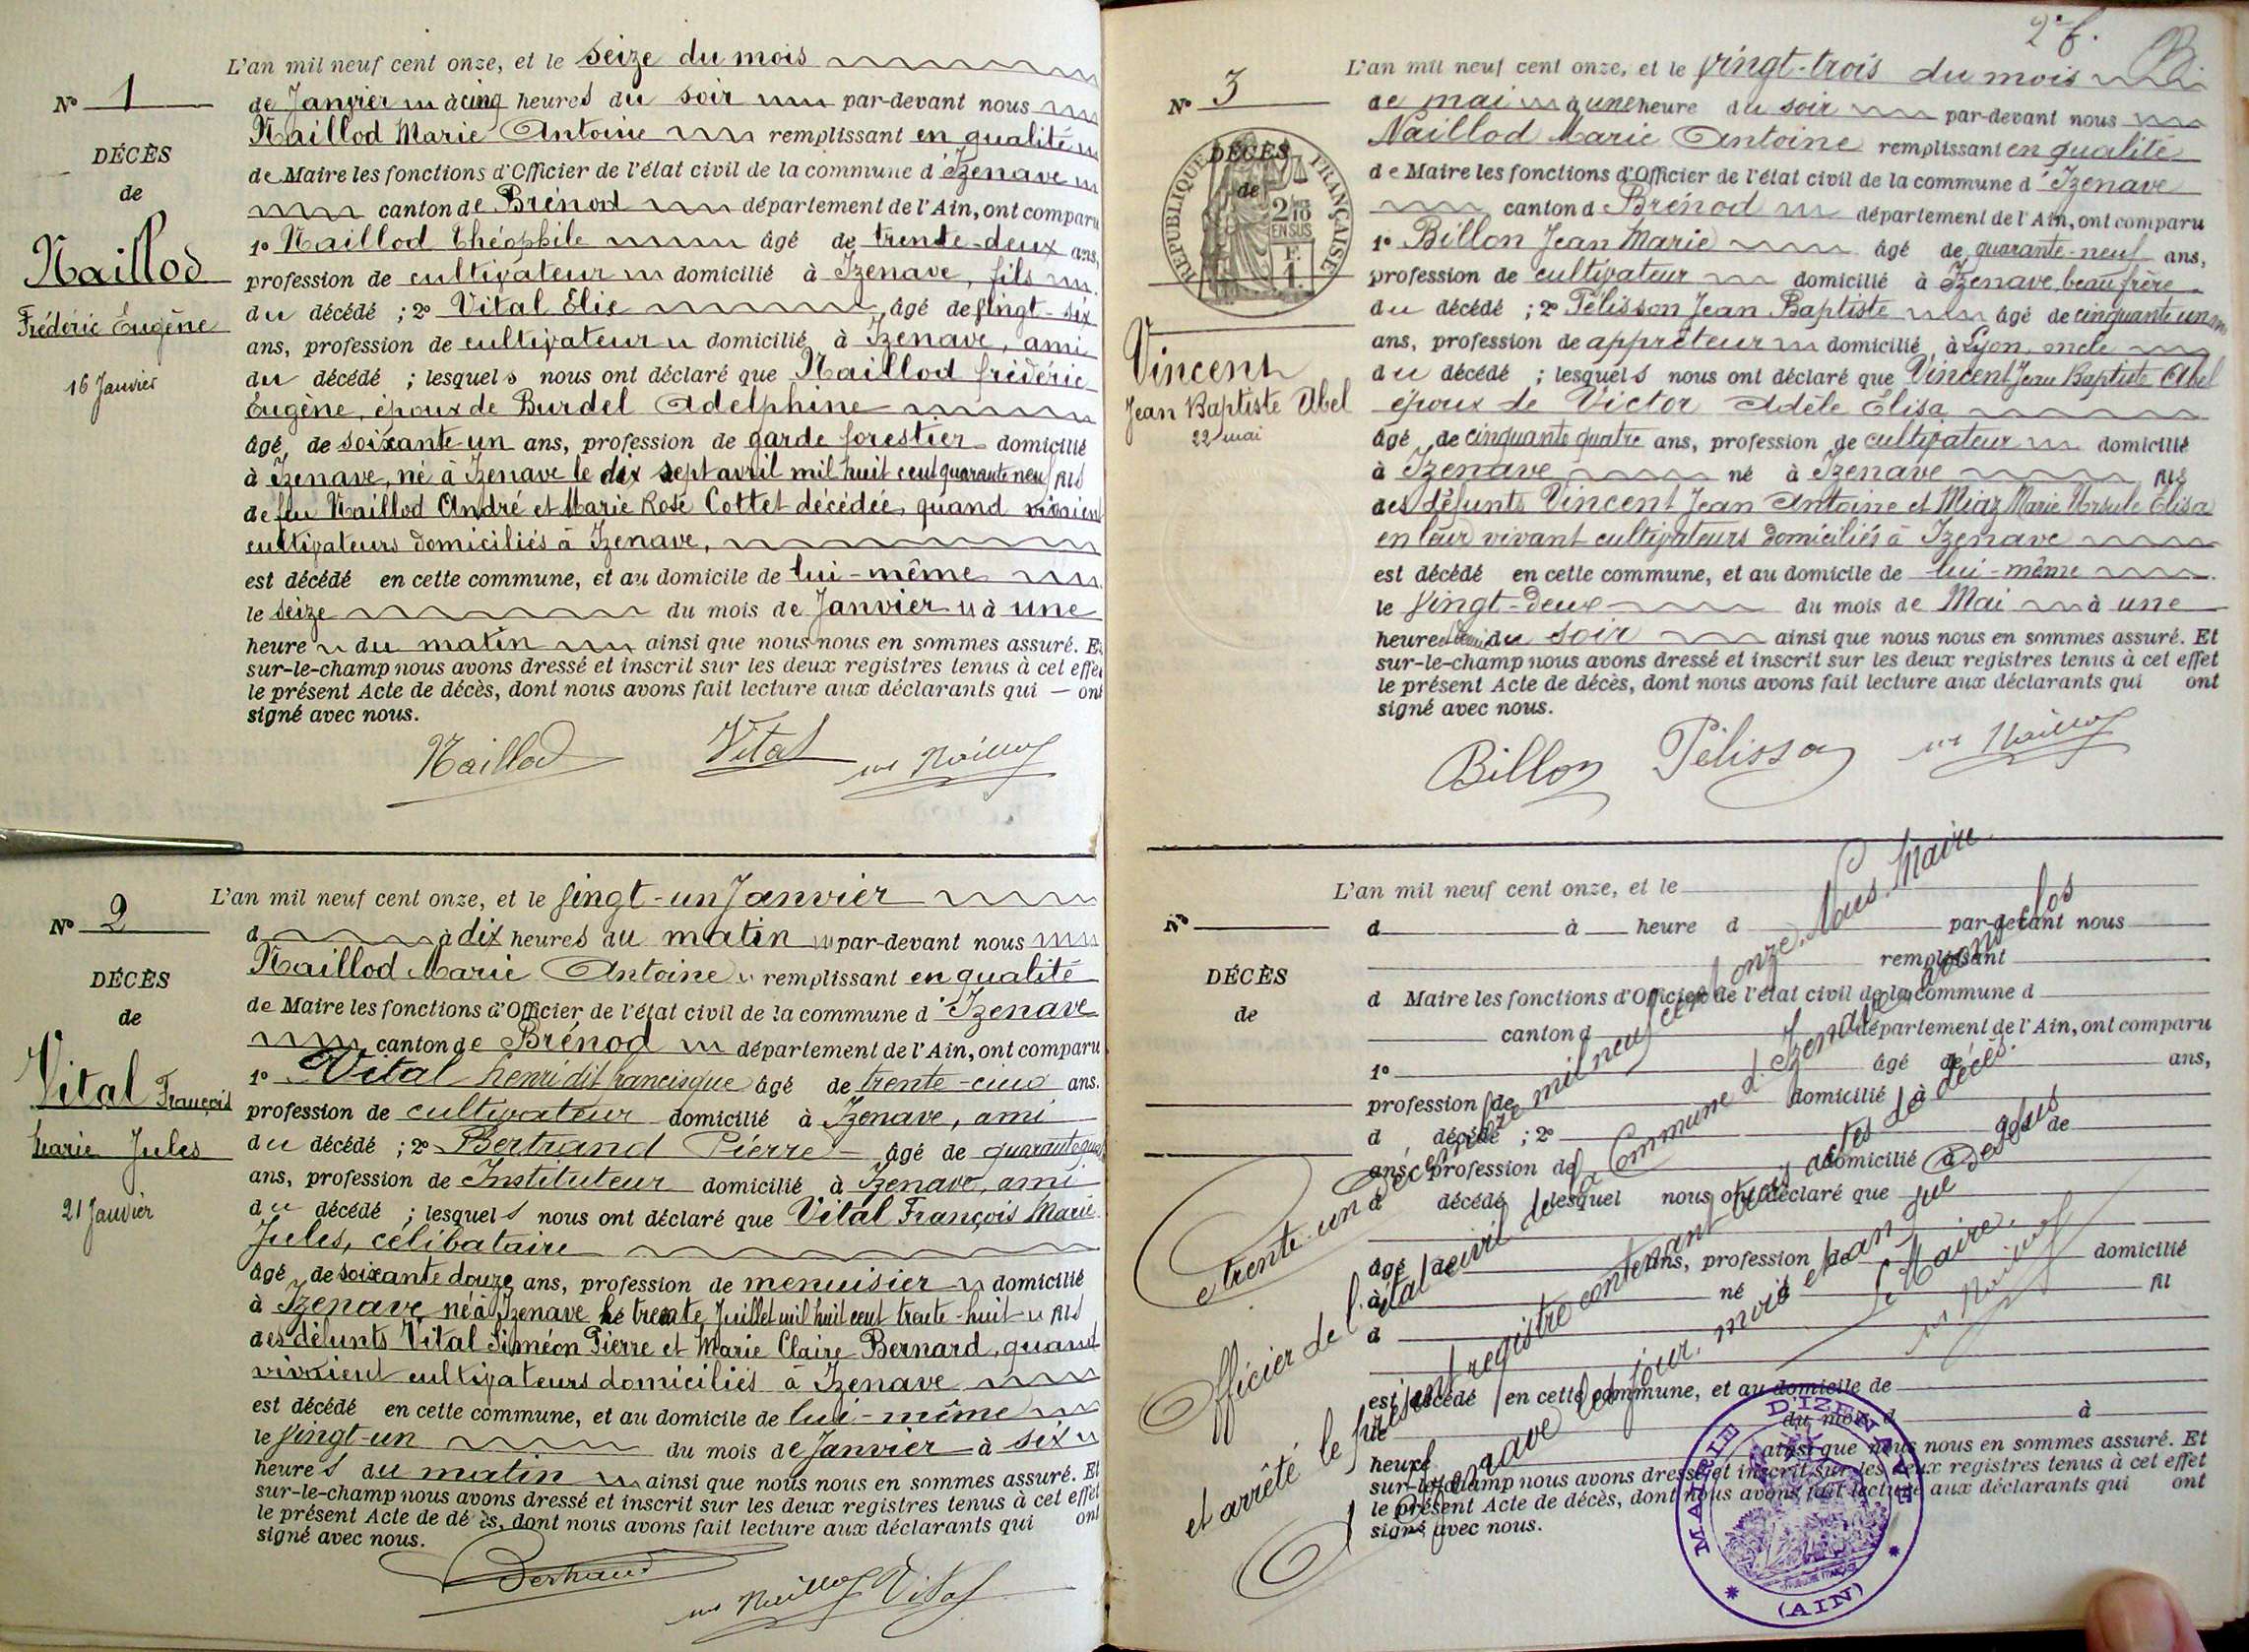 L'an mil neuf cent onze, et le seize du mois
Nº 1
de Janvier à cinq heures du soir par-devant nous
Naillod Marie Antoine remplissant en qualité
DÉCÈS
de Maire les fonctions d'Officier de l'état civil de la commune d'Izenave
de
canton de Brénod département de l'Ain, ont comparu
Naillod
1º Naillod Théophile âgé de trente-deux ans,
profession de cultivateur domicilié à Izenave, fils
Frédéric Eugène
du décédé ; 2º Vital Elie âgé de vingt-six
ans, profession de cultivateur domicilié à Izenave, ami
16 Janvier
du décédé ; lesquels nous ont déclaré que Naillod frédéric
Eugène, époux de Burdel Adelphine
âgé de soixante-un ans, profession de garde forestier domicilié
à Izenave, né à Izenave le dix sept avril mil huit cent quarante neuf fils
de feu Naillod André et Marie Rose Cottet décédée, quand vivaient
cultivateurs domiciliés à Izenave,
est décédé en cette commune, et au domicile de lui-même
le seize du mois de Janvier à une
heure du matin ainsi que nous nous en sommes assuré. Et
sur-le-champ nous avons dressé et inscrit sur les deux registres tenus à cet effet
le présent Acte de décès, dont nous avons fait lecture aux déclarants qui — ont
signé avec nous.
Naillod Vital Naillod
L'an mil neuf cent onze, et le vingt-un Janvier
Nº 2
d à dix heures du matin par-devant nous
Naillod Marie Antoine remplissant en qualité
DÉCÈS
de Maire les fonctions d'Officier de l'état civil de la commune d'Izenave
de
canton de Brénod département de l'Ain, ont comparu
Vital François
1º Vital henri dit francisque âgé de trente-cinq ans.
profession de cultivateur domicilié à Izenave, ami
Marie Jules
du décédé ; 2º Bertrand Pierre âgé de quarante
ans, profession de Instituteur domicilié à Izenave, ami
21 Janvier
du décédé ; lesquels nous ont déclaré que Vital François Marie
Jules, célibataire
âgé de soixante douze ans, profession de menuisier domicilié
à Izenave né à Izenave le trente Juillet mil huit cent trente-huit fils
des défunts Vital Siméon Pierre et Marie Claire Bernard, quand
vivaient cultivateurs domiciliés à Izenave
est décédé en cette commune, et au domicile de lui-même
le vingt-un du mois de Janvier à six
heures du matin ainsi que nous nous en sommes assuré. Et
sur-le-champ nous avons dressé et inscrit sur les deux registres tenus à cet effet
le présent Acte de dé ès, dont nous avons fait lecture aux déclarants qui ont
signé avec nous.
Bertrand Naillod Vital
2e f.
L'an mil neuf cent onze, et le vingt-trois du mois
Nº 3
de mai à une heure du soir par-devant nous
Naillod Marie Antoine remplissant en qualité
DÉCÈS
de
RÉPUBLIQUE FRANÇAISE
2/10
EN SUS
F.
1.
de Maire les fonctions d'Officier de l'état civil de la commune d'Izenave
canton d Brénod département de l'Ain, ont comparu
1º Billon Jean Marie âgé de quarante-neuf ans,
profession de cultivateur domicilié à Izenave, beau frère
du décédé ; 2º Pélisson Jean Baptiste âgé de cinquante un
Vincent
ans, profession de apprêteur domicilié à Lyon, oncle
du décédé ; lesquels nous ont déclaré que Vincent Jean Baptiste Abel
Jean Baptiste Abel
époux de Victor Adèle Élisa
22 mai
âgé de cinquante quatre ans, profession de cultivateur domicilié
à Izenave né à Izenave fils
des défunts Vincent Jean Antoine et Miaz Marie Ursule Elisa
en leur vivant cultivateurs domiciliés à Izenave
est décédé en cette commune, et au domicile de lui-même
le vingt-deux du mois de Mai à une
heure du soir ainsi que nous nous en sommes assuré. Et
sur-le-champ nous avons dressé et inscrit sur les deux registres tenus à cet effet
le présent Acte de décès, dont nous avons fait lecture aux déclarants qui ont
signé avec nous.
Billon Pélisson Naillod
L'an mil neuf cent onze, et le
Nº
d à heure d par-devant nous
remplissant
DÉCÈS
d Maire les fonctions d'Officier de l'état civil de la commune d
de
canton d département de l'Ain, ont comparu
1º âgé de ans,
profession de domicilié à
d décédé ; 2º âgé de
ans, profession de domicilié à
d décédé ; lesquel nous ont déclaré que
âgé de ans, profession de domicilié
à né à fil
d
est décédé en cette commune, et au domicile de
le du mois d à
heure ainsi que nous nous en sommes assuré. Et
sur-le-champ nous avons dressé et inscrit sur les deux registres tenus à cet effet
le présent Acte de décès, dont nous avons fait lecture aux déclarants qui ont
signé avec nous.
Ce trente-un décembre mil neuf cent onze. Nous Maire
Officier de l'état civil de la Commune d'Izenave avons clos
et arrêté le présent registre contenant trois actes de décès.
Izenave les jour, mois et an que dessus
Le Maire.
Naillod
MAIRIE D'IZENAVE
(AIN)